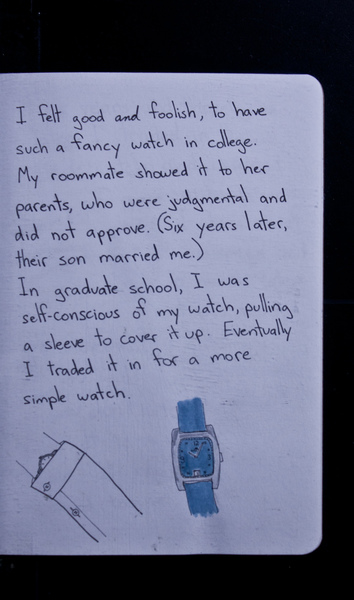 I felt good and foolish, to have
such a fancy watch in college.
My roommate showed it to her
parents, who were judgmental and
did not approve. (Six years later,
their son married me.)
In graduate school, I was
self-conscious of my watch, pulling
a sleeve to cover it up. Eventually
I traded it in for a more
simple watch.